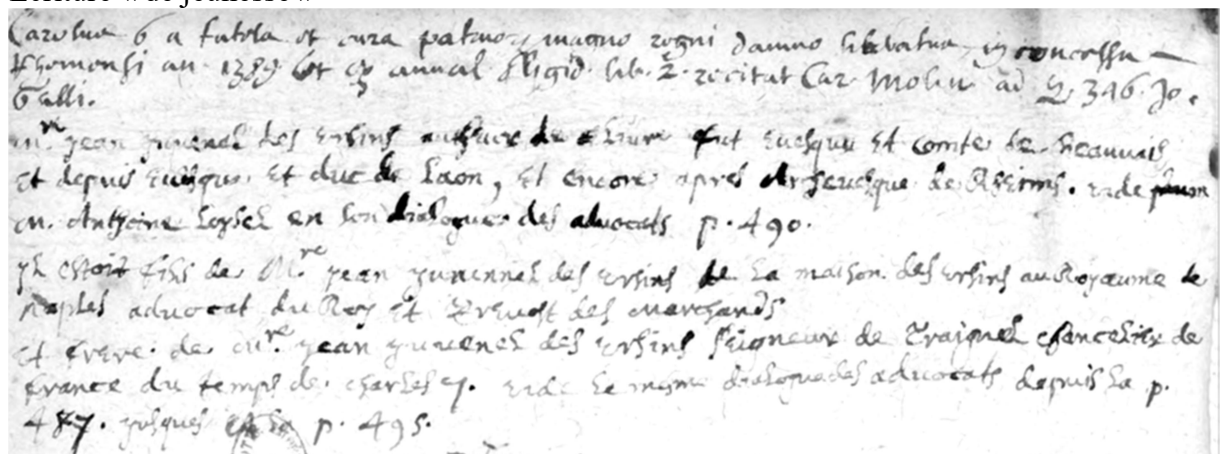 Carolus 6 a tutela et cura patruorum magno regni damno liberatus, in concessu
Rhemensi an. 1389 ut annal lib. 2. recitat Car. Molin. ad q. 346. Jo.
Galli.
Mre. Jean Juvenel des Ursins autheur de ce livre fut evesque et comte de Beauvais
et depuis evesque et duc de Laon, et encore apres Archevesque de Rheims. vide
M. Anthoine Loysel en son dialogue des advocats p. 490.
Il estoit fils de Mre. Jean Juvennel des Ursins de la maison des Ursins au Royaume de
Naples advocat du Roy et Prevost des marchands
et frere de Mre. Jean Juvenel des Ursins seigneur de Traignel chancelier de
France du temps de Charles 7. vide le mesme dialogue des advocats depuis la p.
487. jusques a la p. 495.